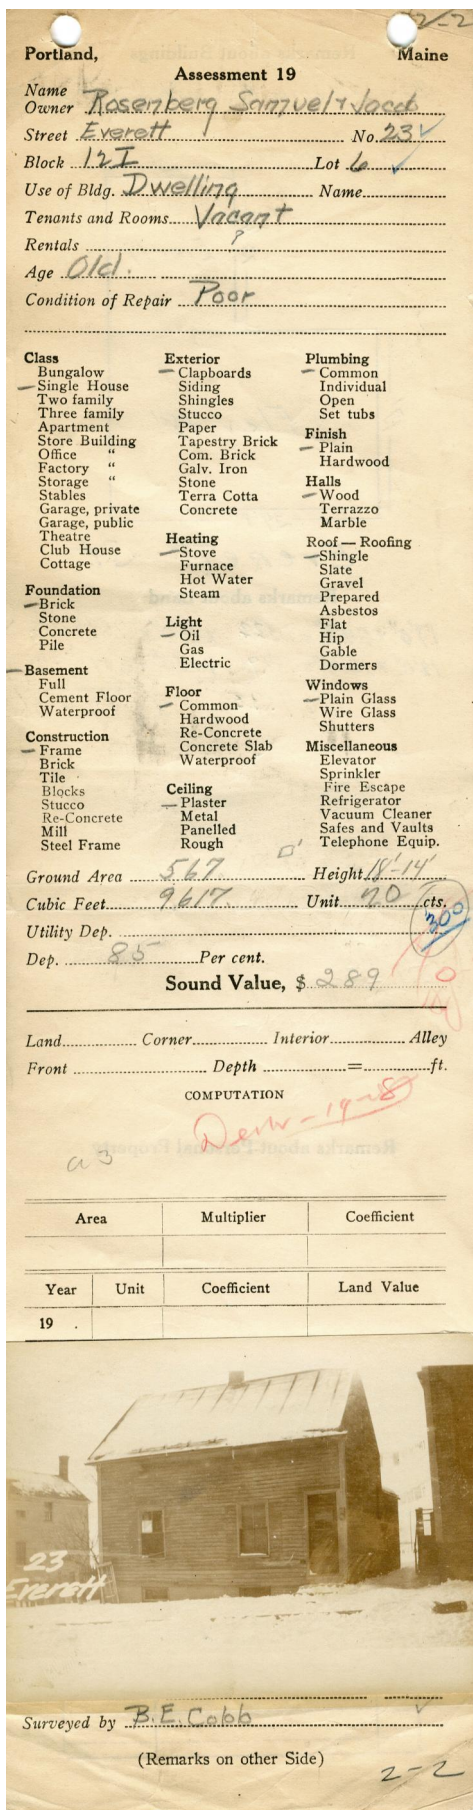 2-2
Portland, Maine
Assessment 19
Name
Owner Rosenberg Samuel & Jacob
Street Everett No. 23
Block 12I Lot 6
Use of Bldg. Dwelling Name
Tenants and Rooms Vacant
Rentals ?
Age Old.
Condition of Repair Poor
Class
Bungalow
Single House
Two family
Three family
Apartment
Store Building
Office "
Factory "
Storage "
Stables
Garage, private
Garage, public
Theatre
Club House
Cottage
Foundation
Brick
Stone
Concrete
Pile
Basement
Full
Cement Floor
Waterproof
Construction
Frame
Brick
Tile
Blocks
Stucco
Re-Concrete
Mill
Steel Frame
Exterior
Clapboards
Siding
Shingles
Stucco
Paper
Tapestry Brick
Com. Brick
Galv. Iron
Stone
Terra Cotta
Concrete
Heating
Stove
Furnace
Hot Water
Steam
Light
Oil
Gas
Electric
Floor
Common
Hardwood
Re-Concrete
Concrete Slab
Waterproof
Ceiling
Plaster
Metal
Panelled
Rough
Plumbing
Common
Individual
Open
Set tubs
Finish
Plain
Hardwood
Halls
Wood
Terrazzo
Marble
Roof — Roofing
Shingle
Slate
Gravel
Prepared
Asbestos
Flat
Hip
Gable
Dormers
Windows
Plain Glass
Wire Glass
Shutters
Miscellaneous
Elevator
Sprinkler
Fire Escape
Refrigerator
Vacuum Cleaner
Safes and Vaults
Telephone Equip.
Ground Area 567 Height 18'-14'
Cubic Feet 9617 Unit 20 cts.
300
Utility Dep.
Dep. 85 Per cent.
0
Sound Value, $ 289
Land Corner Interior Alley
Front Depth = ft.
COMPUTATION
a 3
Area Multiplier Coefficient
Year Unit Coefficient Land Value
19 .
23
Everett
Surveyed by B. E. Cobb
(Remarks on other Side)
2-2